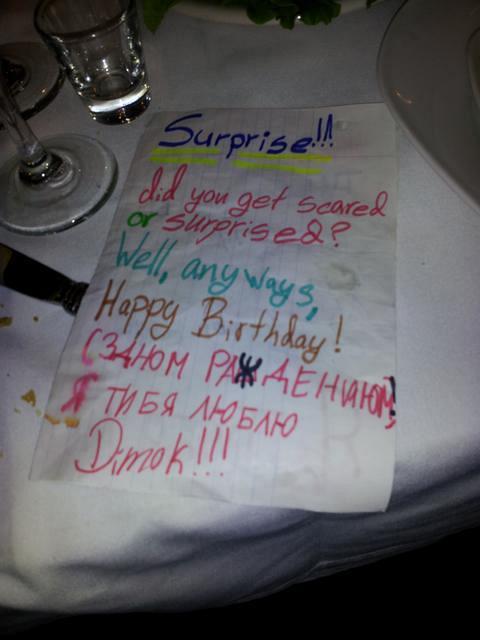 Surprise!!!
did you get scared
or surprised?
Well, any ways,
Happy Birthday!
(ЗДНОМ РАЖДЕНИЮМ!
Я ТИБЯ ЛЮБЛЮ
Dimok!!!